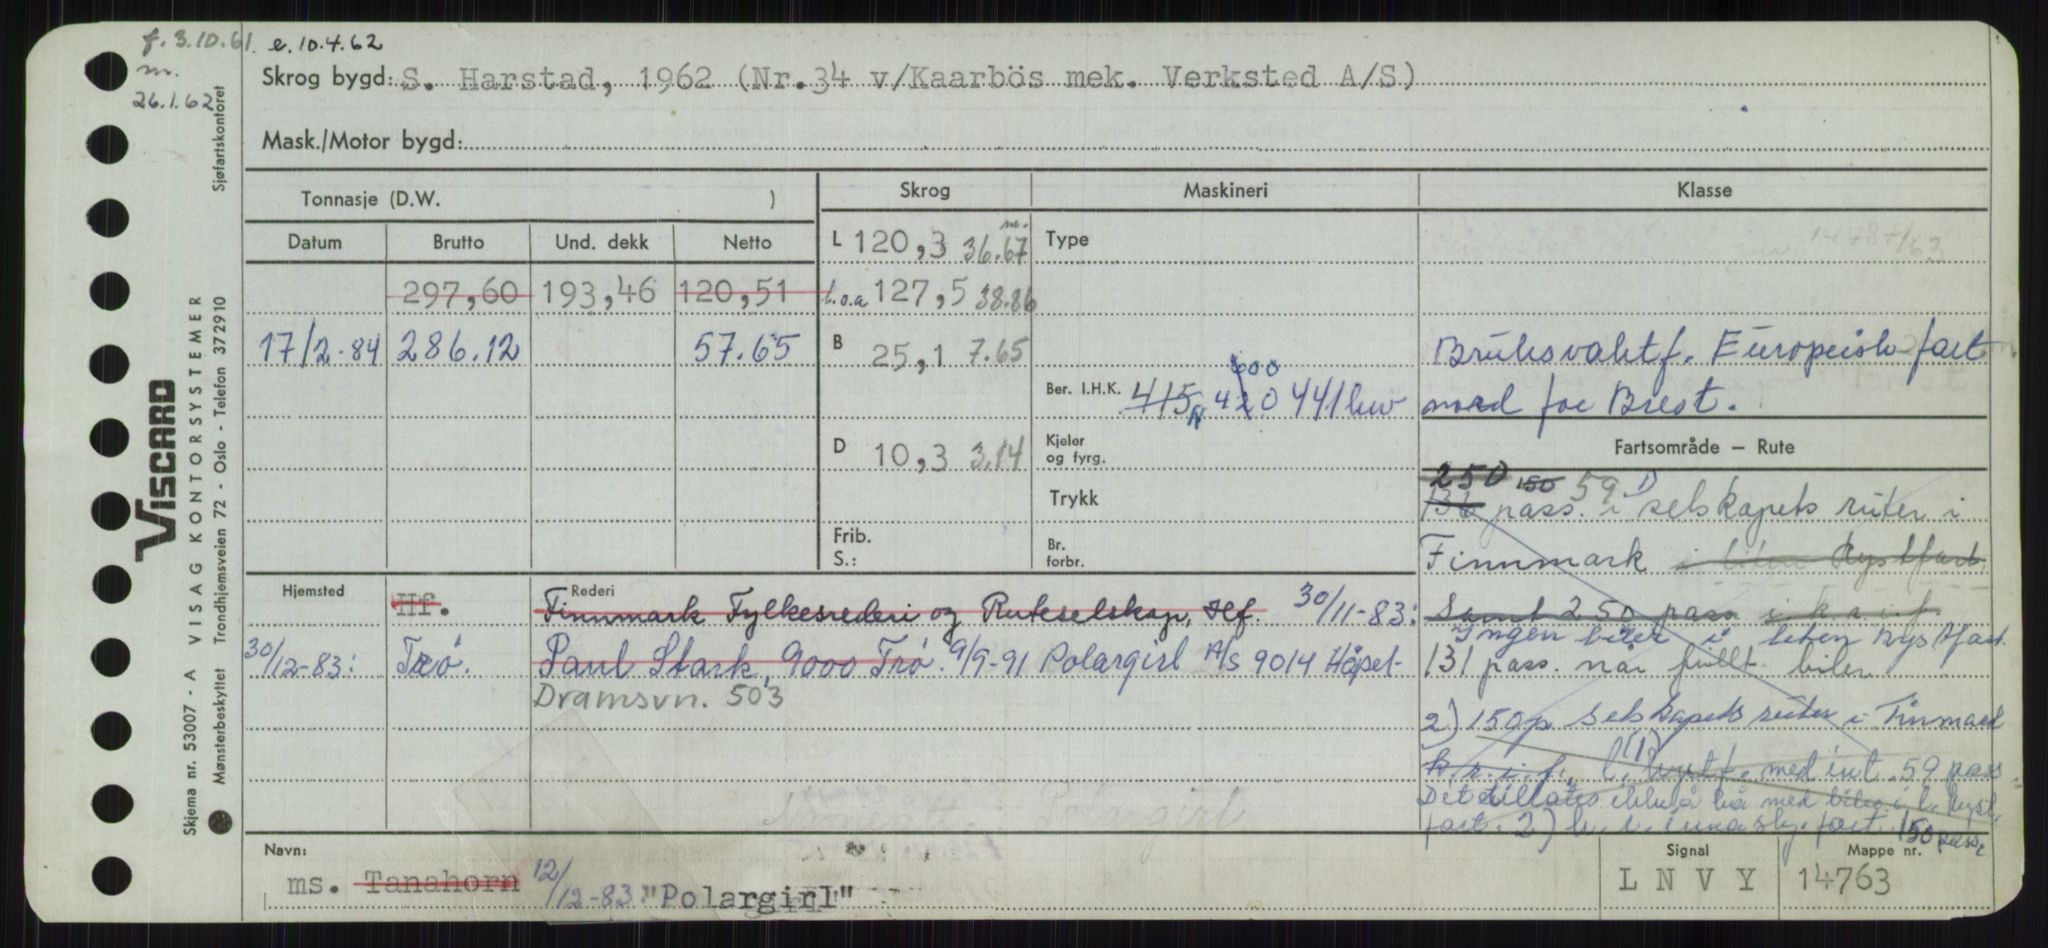 f. 3.10.61. e. 10.4.62
m.
26.1.62
Skrog bygd: S. Harstad, 1962 (Nr.34 v/Kaarbös mek. Verksted A/S)
Mask./Motor bygd:
Tonnasje (D.W. )
Skrog
Maskineri
Klasse
Datum Brutto Und. dekk Netto
L 120,3 36.67 m.
Type
297,60 193,46 120,51
l.o.a 127,5 38.86
17/2-84 286.12 57.65
B 25,1 7.65
Bruksvaktf. Europeisk fart
nord for Brest.
Ber. I.H.K. 415 420 600 441 kw
D 10,3 3.14
Kjeler og fyrg.
Trykk
Frib.
S.:
Br. forbr.
Fartsområde – Rute
250 150 59 1)
131 pass. i selskapets ruter i
Finnmark i liten kystfart
Samt 250 pass i k.r.i.f.
Ingen biler i liten kystfart.
131 pass. når fullt biler
2) 150 p. selskapets ruter i Finmark
k.r.i.f., (1) l. kystf. med int. 59 pass.
Det tillates ikke å ha med biler i l. kyst
fart. 2) 150 pass.
Hjemsted Hf.
Rederi Finnmark Fylkesrederi og Ruteselskap, Hf. 30/11-83:
30/12-83: Trö. Paul Stark, 9000 Trö. 9/9-91 Polargirl A/S 9014 Håpet-
Dramsvn. 503
Polargirl
Navn:
ms. Tanahorn 12/12-83: "Polargirl"
Signal
L N V Y
Mappe nr.
14763
VISCARD
Skjema nr. 53007 - A VISAG KONTORSYSTEMER
Mønsterbeskyttet Trondhjemsveien 72 - Oslo - Telefon 372910 Sjøfartskontoret